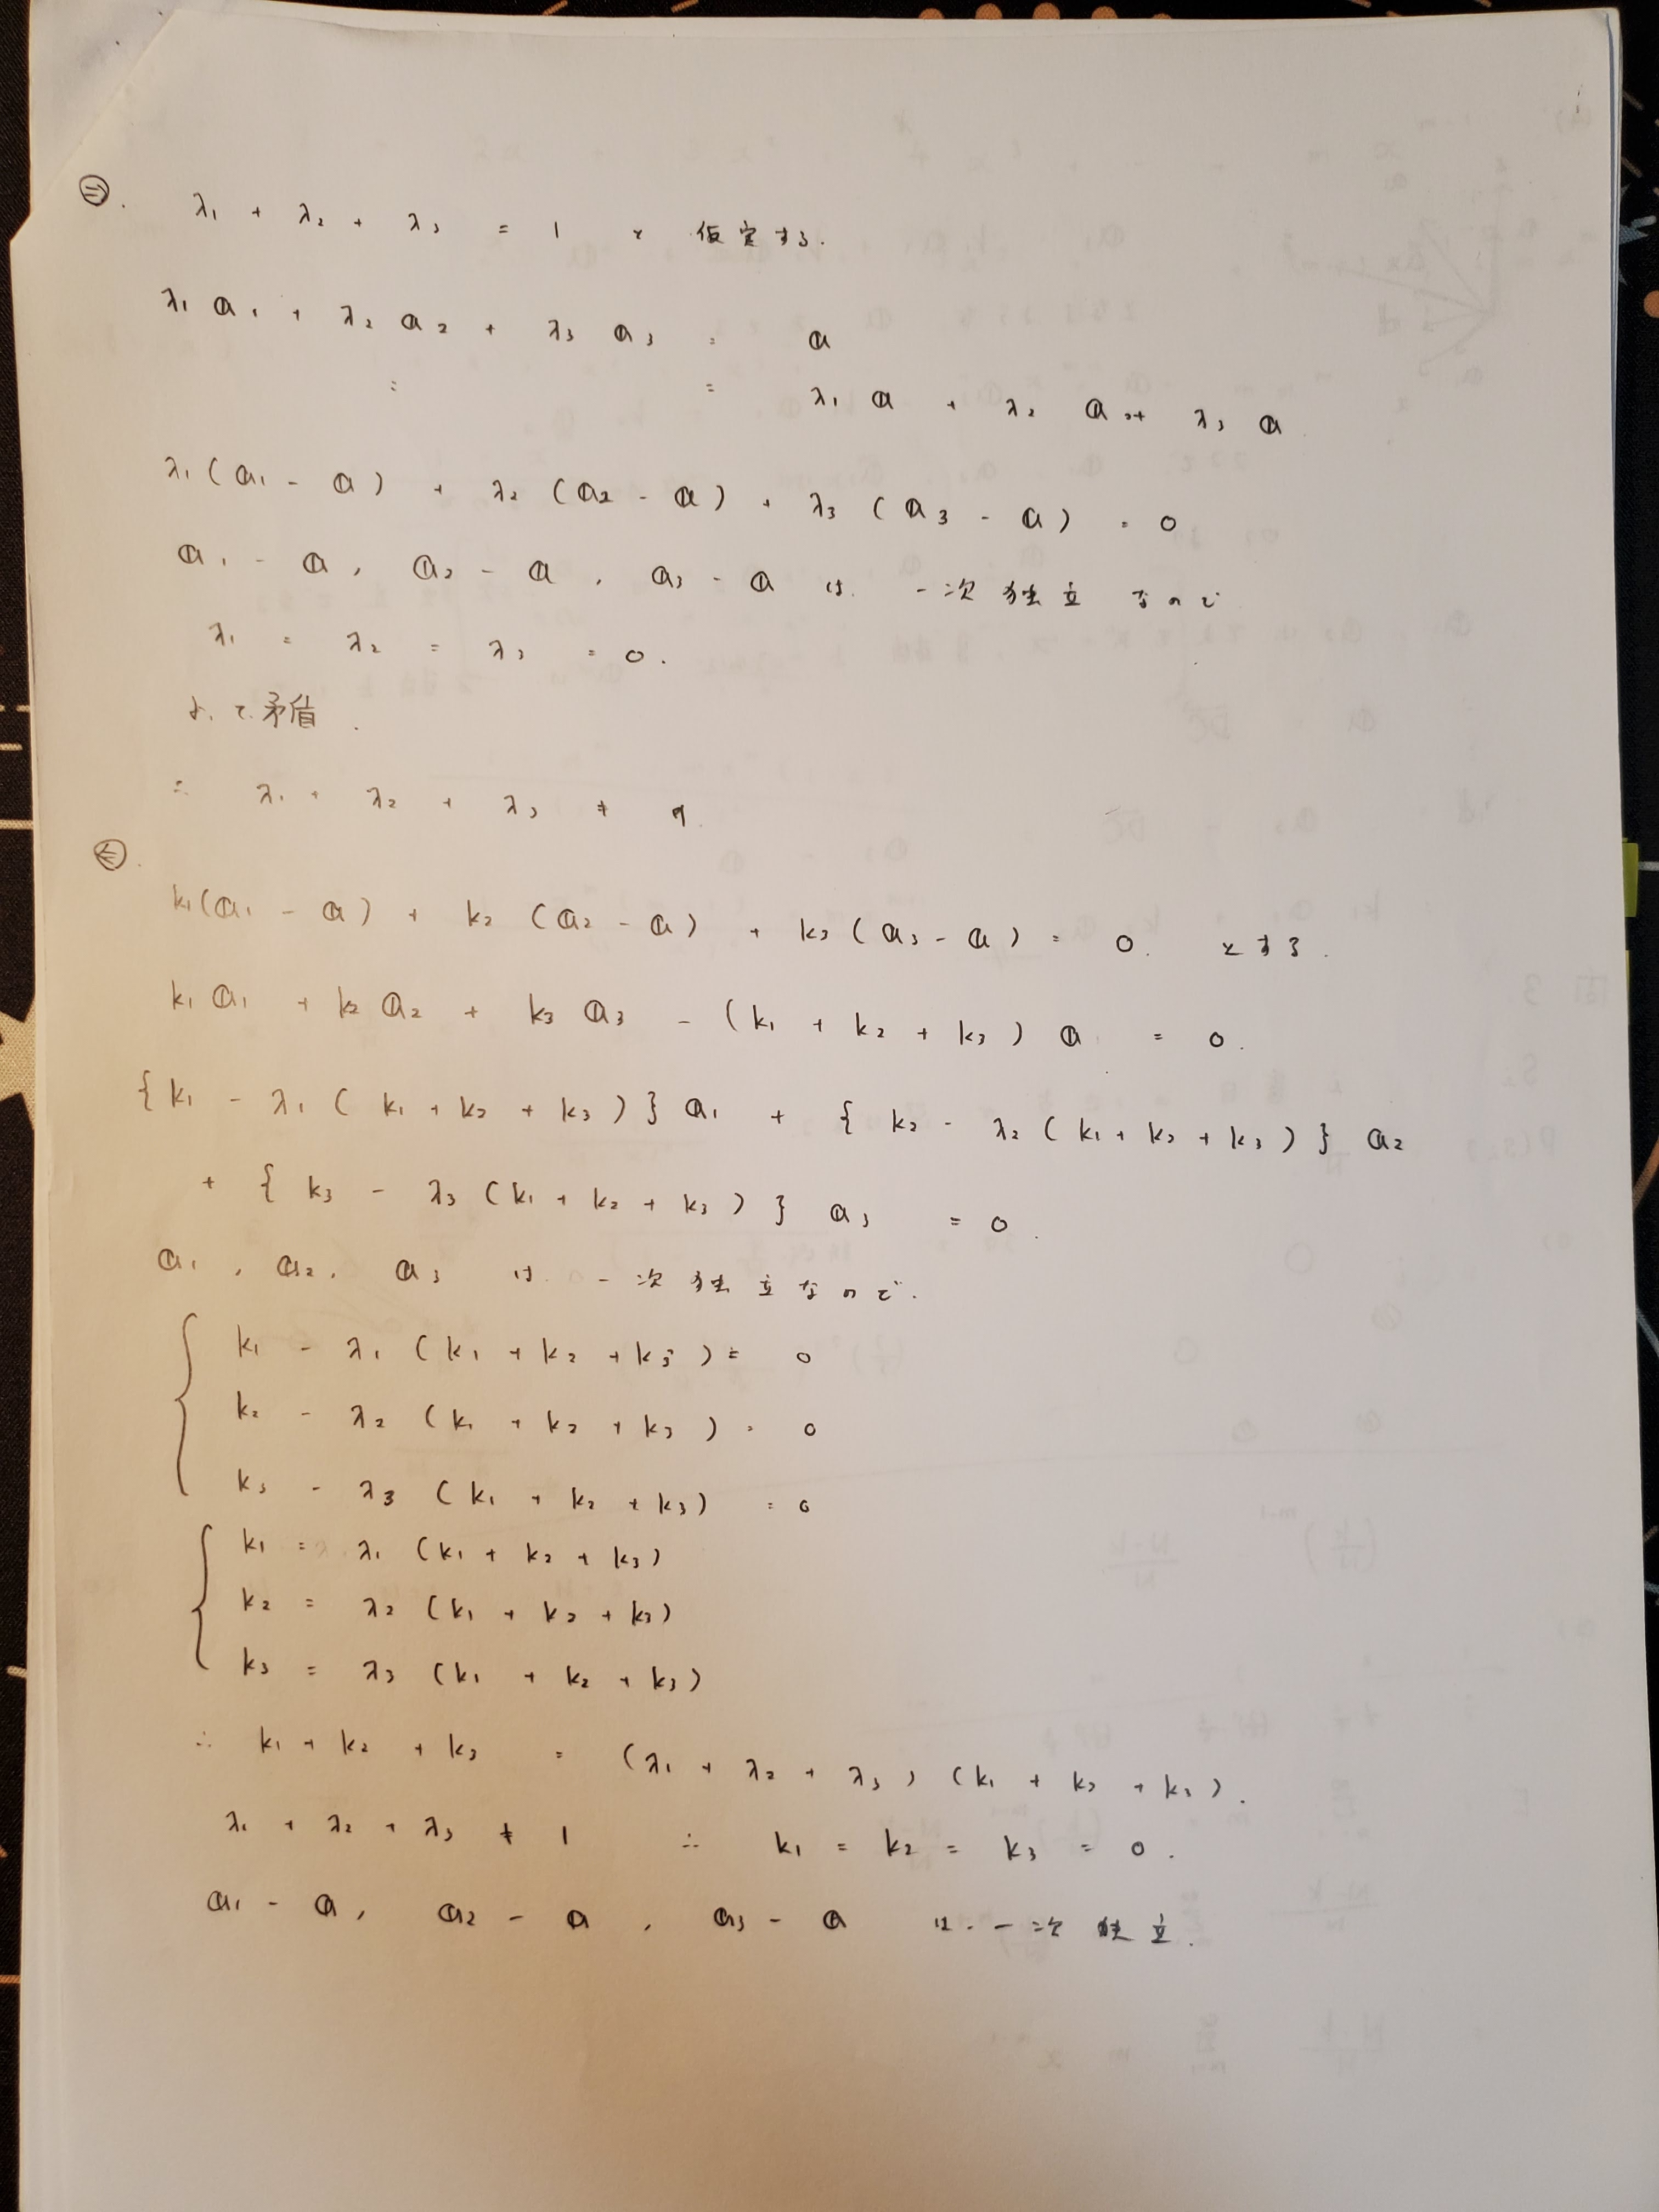 ⇒.
λ₁ + λ₂ + λ₃ = 1 と 仮定する.
λ₁ a₁ + λ₂ a₂ + λ₃ a₃ = a
= λ₁ a + λ₂ a + λ₃ a
λ₁(a₁ - a) + λ₂(a₂ - a) + λ₃(a₃ - a) = 0
a₁ - a, a₂ - a, a₃ - a は 一次独立なので
λ₁ = λ₂ = λ₃ = 0.
よって矛盾.
∴ λ₁ + λ₂ + λ₃ ≠ 1.
⇐.
k₁(a₁ - a) + k₂(a₂ - a) + k₃(a₃ - a) = 0. とする.
k₁ a₁ + k₂ a₂ + k₃ a₃ - (k₁ + k₂ + k₃) a = 0.
{k₁ - λ₁(k₁ + k₂ + k₃)} a₁ + {k₂ - λ₂(k₁ + k₂ + k₃)} a₂
+ {k₃ - λ₃(k₁ + k₂ + k₃)} a₃ = 0.
a₁, a₂, a₃ は 一次独立なので.
k₁ - λ₁(k₁ + k₂ + k₃) = 0
k₂ - λ₂(k₁ + k₂ + k₃) = 0
k₃ - λ₃(k₁ + k₂ + k₃) = 0
k₁ = λ₁(k₁ + k₂ + k₃)
k₂ = λ₂(k₁ + k₂ + k₃)
k₃ = λ₃(k₁ + k₂ + k₃)
∴ k₁ + k₂ + k₃ = (λ₁ + λ₂ + λ₃)(k₁ + k₂ + k₃).
λ₁ + λ₂ + λ₃ ≠ 1 ∴ k₁ = k₂ = k₃ = 0.
a₁ - a, a₂ - a, a₃ - a は. 一次独立.